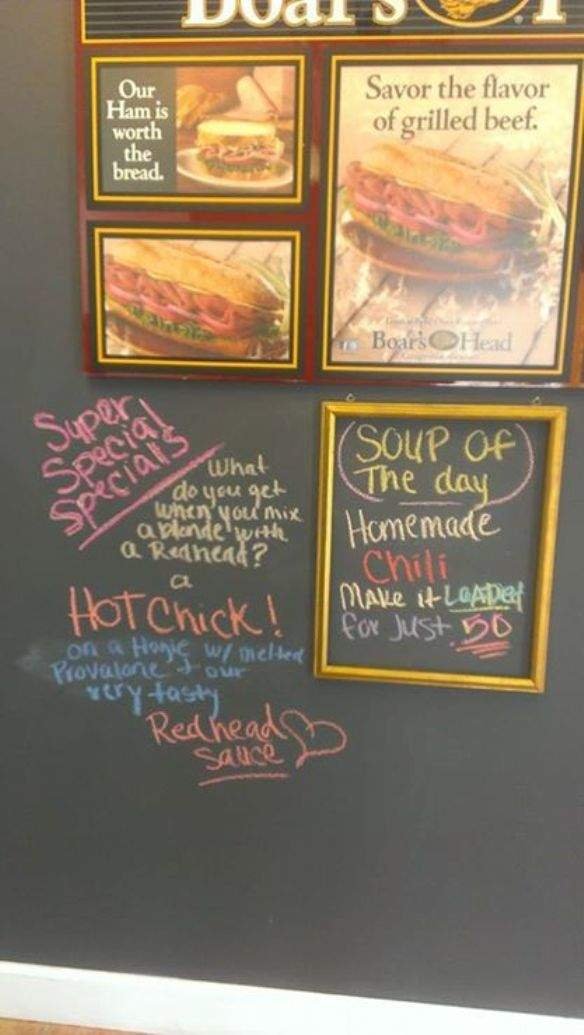 Boar's
Our
Ham is
worth
the
bread.
Savor the flavor
of grilled beef.
Boar's Head
Super
Special
Specials
What
do you get
when you mix
a blonde with
a Redhead?
a
HOT Chick!
on a Hogie w/ melted
Provalone + our
very tasty
Redhead
Sauce
SOUP OF
The day
Homemade
Chili
MAKe it LOADeD
for Just .50